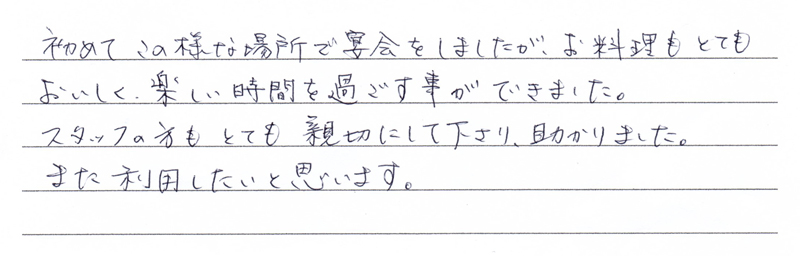 初めてこの様な場所で宴会をしましたが、お料理もとても
おいしく、楽しい時間を過ごす事ができました。
スタッフの方もとても親切にして下さり、助かりました。
また利用したいと思います。